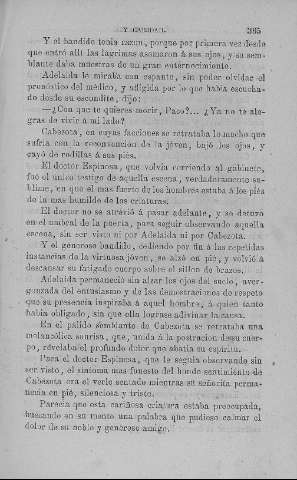 Y CARIDAD. 385
Y el bandido tenia razon, porque por primera vez desde
que entró allí las lágrimas asomaron á sus ojos, y su sem-
blante daba muestras de un gran enternecimiento.
Adelaida le miraba con espanto, sin poder olvidar el
pronóstico del médico, y afligida por lo que habia escucha-
do desde su escondite, dijo:
—¿Con que te quieres morir, Paco?... ¿Ya no te ale-
gras de vivir á mi lado?
Cabezota, en cuyas facciones se retrataba lo mucho que
sufria con la consternacion de la jóven, bajó los ojos, y
cayó de rodillas á sus piés.
El doctor Espinosa, que volvia corriendo al gabinete,
fué el único testigo de aquella escena, verdaderamente su-
blime, en que el mas fuerte de los hombres estaba á los piés
de la mas humilde de las criaturas.
El doctor no se atrevió á pasar adelante, y se detuvo
en el umbral de la puerta, para seguir observando aquella
escena, sin ser visto ni por Adelaida ni por Cabezota.
Y el generoso bandido, cediendo por fin á las repetidas
instancias de la virtuosa jóven, se alzó en pié, y volvió á
descansar su fatigado cuerpo sobre el sillon de brazos.
Adelaida permaneció sin alzar los ojos del suelo, aver-
gonzada del entusiasmo y de las demostraciones de respeto
que su presencia inspiraba á aquel hombre, á quien tanto
habia obligado, sin que ella lograse adivinar la causa.
En el pálido semblante de Cabezota se retrataba una
melancólica sonrisa, que, unida á la postracion de su cuer-
po, revelaba el profundo dolor que abatia su espíritu.
Para el doctor Espinosa, que le seguia observando sin
ser visto, el síntoma mas funesto del hondo sentimiento de
Cabezota era el verle sentado mientras su señorita perma-
necia en pié, silenciosa y triste.
Parecia que esta cariñosa criatura estaba preocupada,
buscando en su mente una palabra que pudiese calmar el
dolor de su noble y generoso amigo.